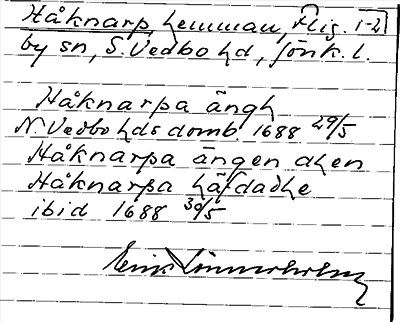 Håknarp, hemman, Flis. 1-2
by sn, S. Vedbo hd, Jönk. l.
Håknarpa ängh
N. Vedbo hds domb. 1688 29/5
Håknarpa ängen dhen
Håknarpa häfdadhe
ibid 1688 30/5
Erik Linnerholm